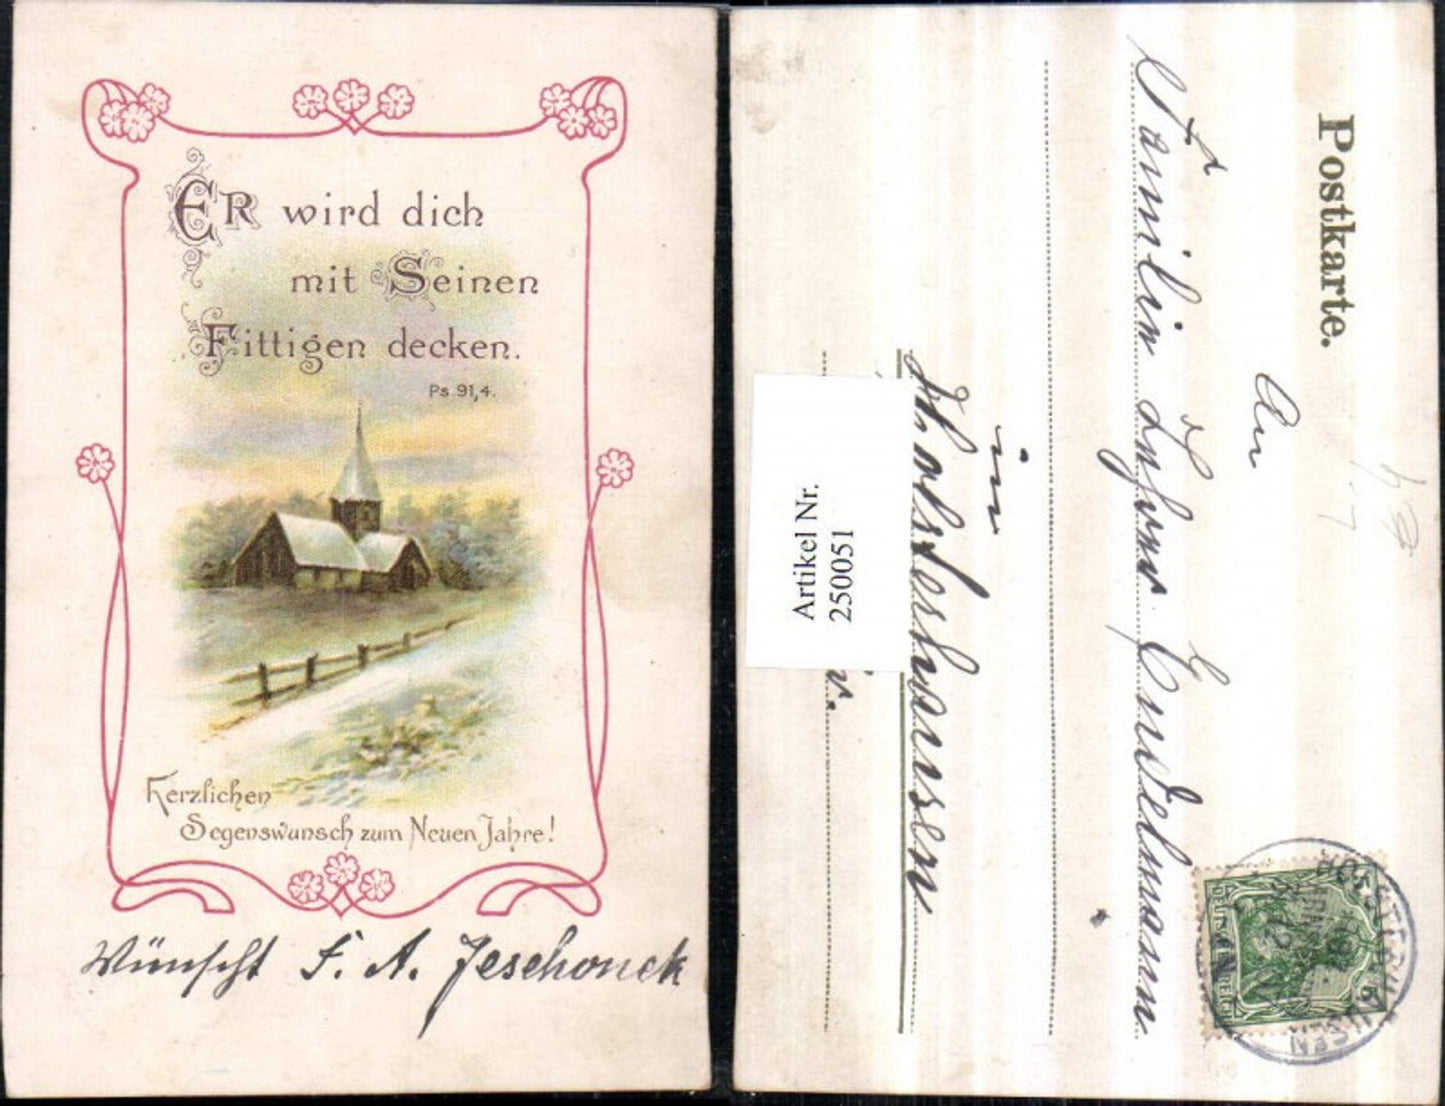 ER wird dich
mit Seinen
Fittigen decken.
Ps. 91,4.
Herzlichen
Segenswunsch zum Neuen Jahre!
Wünscht F. A. Jeschonek
Postkarte.
An
Familie Endelmann
in
Holsterhausen
Artikel Nr.
250051